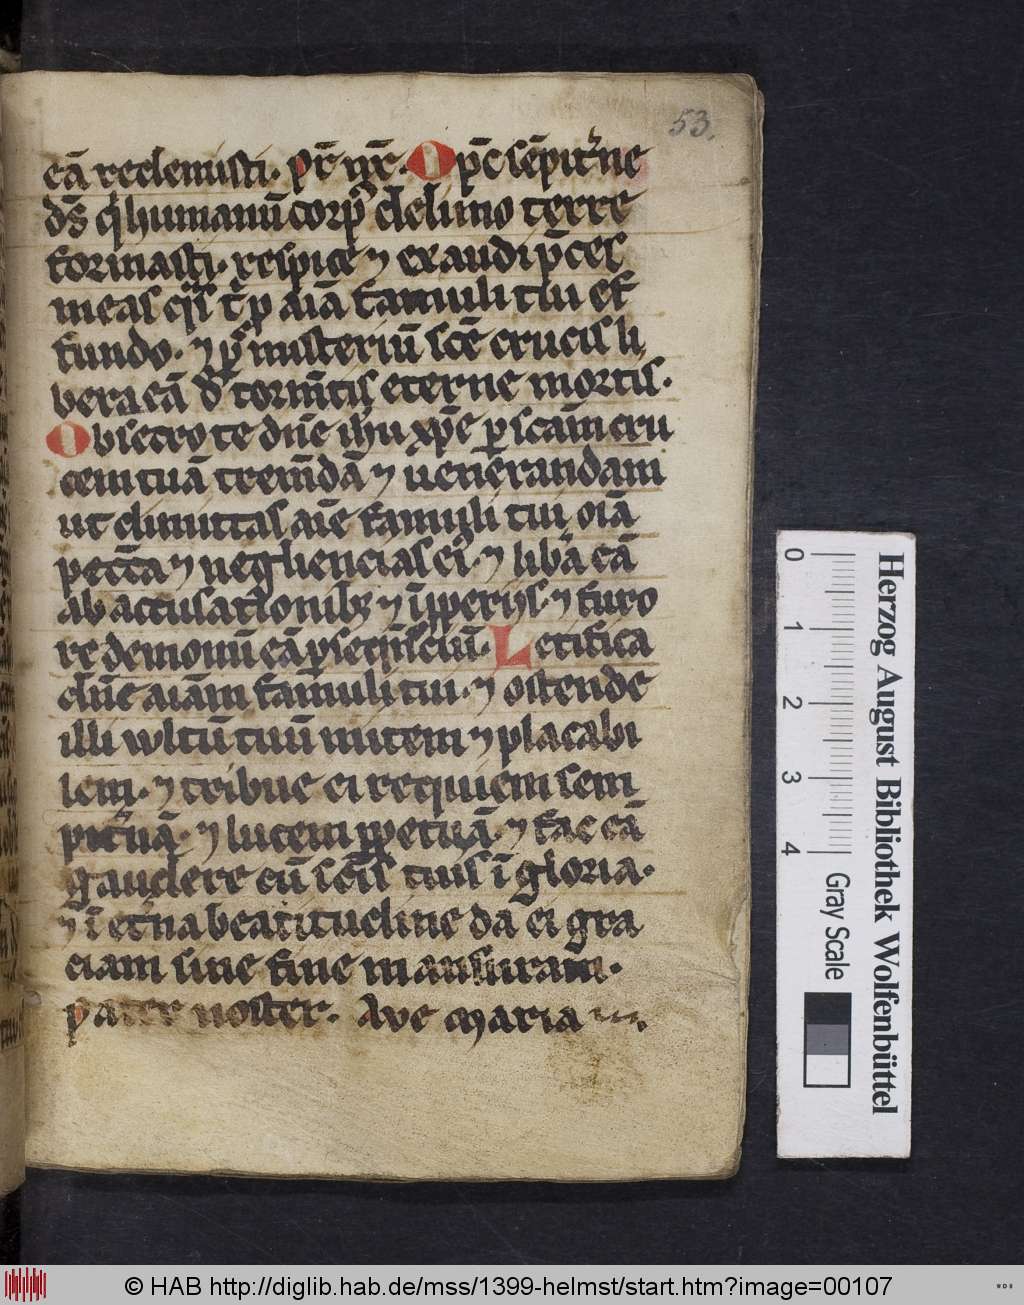 53.
eā redemisti. pr̄ nr̄. O pc̄ sēpit'ne
ds̄ q' humanū corp' de limo terre
formasti. respice ⁊ exaudi p̄ces
meas q's t' p aīā famuli tui ef
fundo. ⁊ p misteriū scē crucis li
bera eā d' torm̄tis eterne mortis.
Obsecro te dn̄e ihu xp̄e p scām cru
cem tuā trem̄dā ⁊ uenerandam
ut dimittas aīe famuli tui oīa
pecc̄a ⁊ negliencias ei. ⁊ lib'a eā
ab accusationibꝫ ⁊ īpperijs. ⁊ furo
re demonū eā pseqn̄ciū. Letifica
dn̄e aīam famuli tui. ⁊ ostende
illi wltū tuū mitem ⁊ placabi
lem. ⁊ tribue ei requiem sem
pit'nā. ⁊ lucem ppetuā. ⁊ fac eā
gaudere cū scīs tuis ī gloria.
⁊ ī et'na beatitudine da ei gra
ciam sine fine mansuram.
Pater noster. Ave maria
Herzog August Bibliothek Wolfenbüttel
0 1 2 3 4 Gray Scale
© HAB http://diglib.hab.de/mss/1399-helmst/start.htm?image=00107